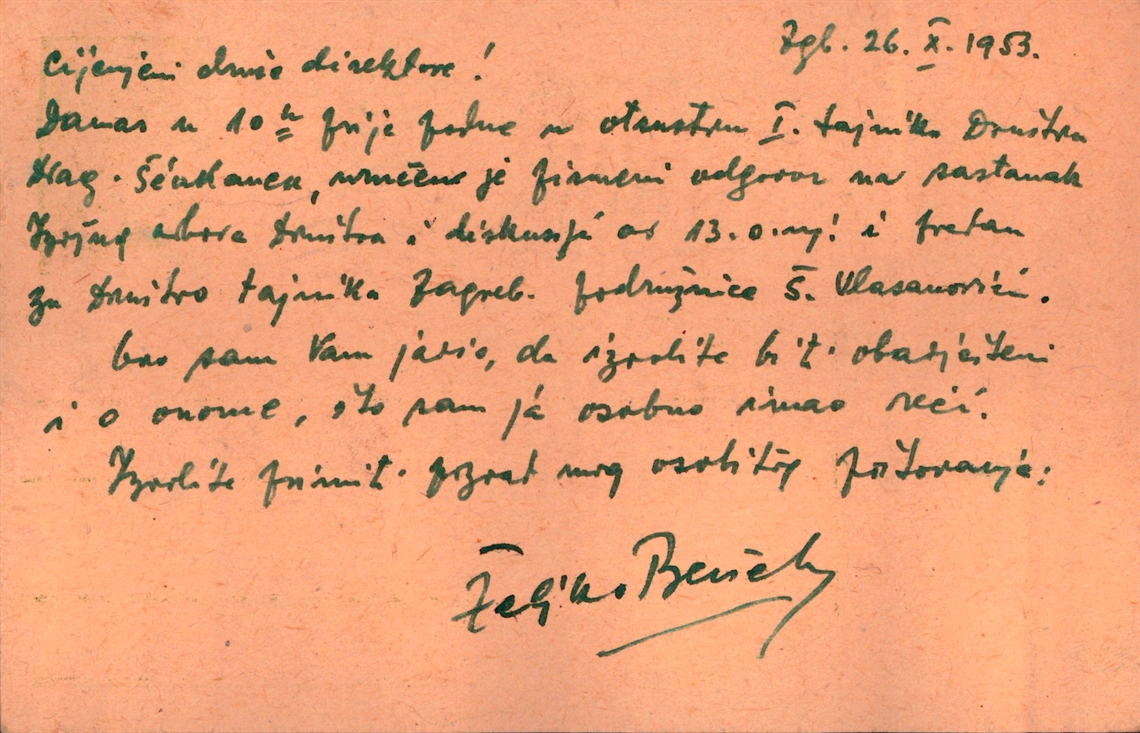 Zgb. 26. X. 1953.
Cijenjeni druže direktore!
Danas u 10 h prije podne u otsustvu I. tajnika Društva
Drag. uručen je pismeni odgovor na sastanak
Izvršnog odbora Društva i diskusiju od 13. o. mj. i predan
za Društvo tajniku Zagreb. podružnice S. Vlasanoviću.
Ovo sam Vam javio, da izvolite biti obavješteni
i o onome, što sam ja osobno imao reći.
Izvolite primiti pozdrav mog osobitog poštovanja:
Željko